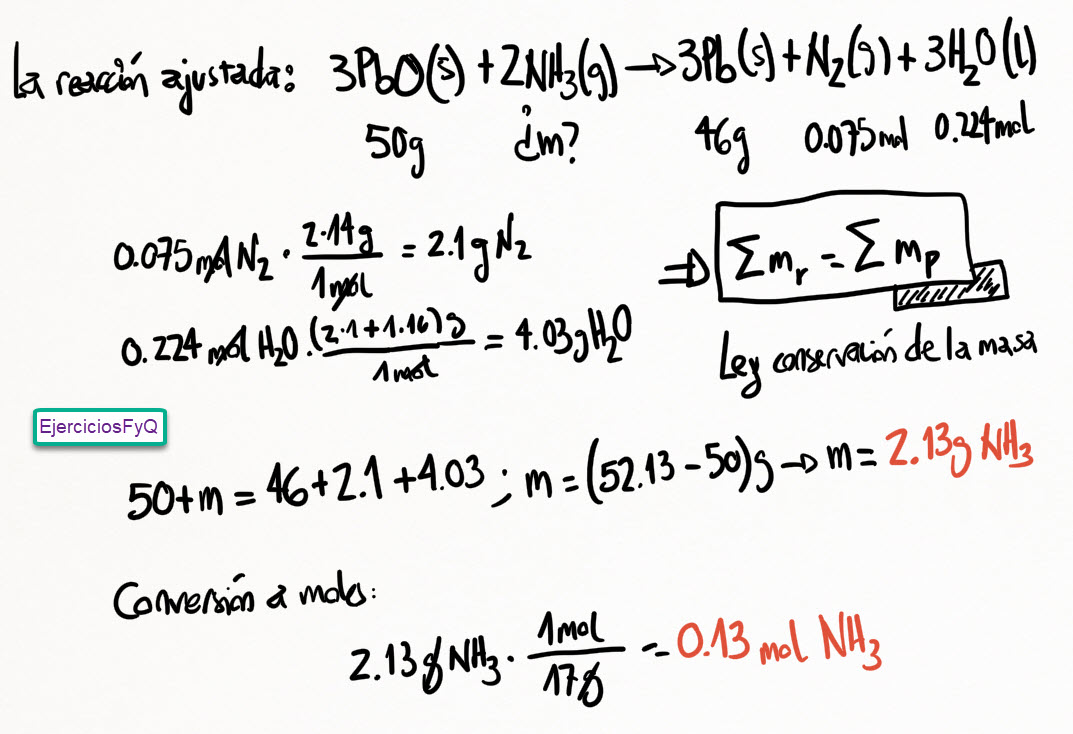 La reacción ajustada: 3PbO(s) + 2NH₃(g) → 3Pb(s) + N₂(g) + 3H₂O(l)
50g ¿m? 46g 0.075mol 0.224mol
0.075 mol N₂ · 2·14g / 1mol = 2.1g N₂
⇒ Σmᵣ = Σmₚ
0.224 mol H₂O · (2·1+1·16)g / 1mol = 4.03g H₂O
Ley conservación de la masa
EjerciciosFyQ
50+m = 46+2.1+4.03 ; m = (52.13-50)g → m = 2.13g NH₃
Conversión a moles:
2.13g NH₃ · 1mol / 17g = 0.13 mol NH₃